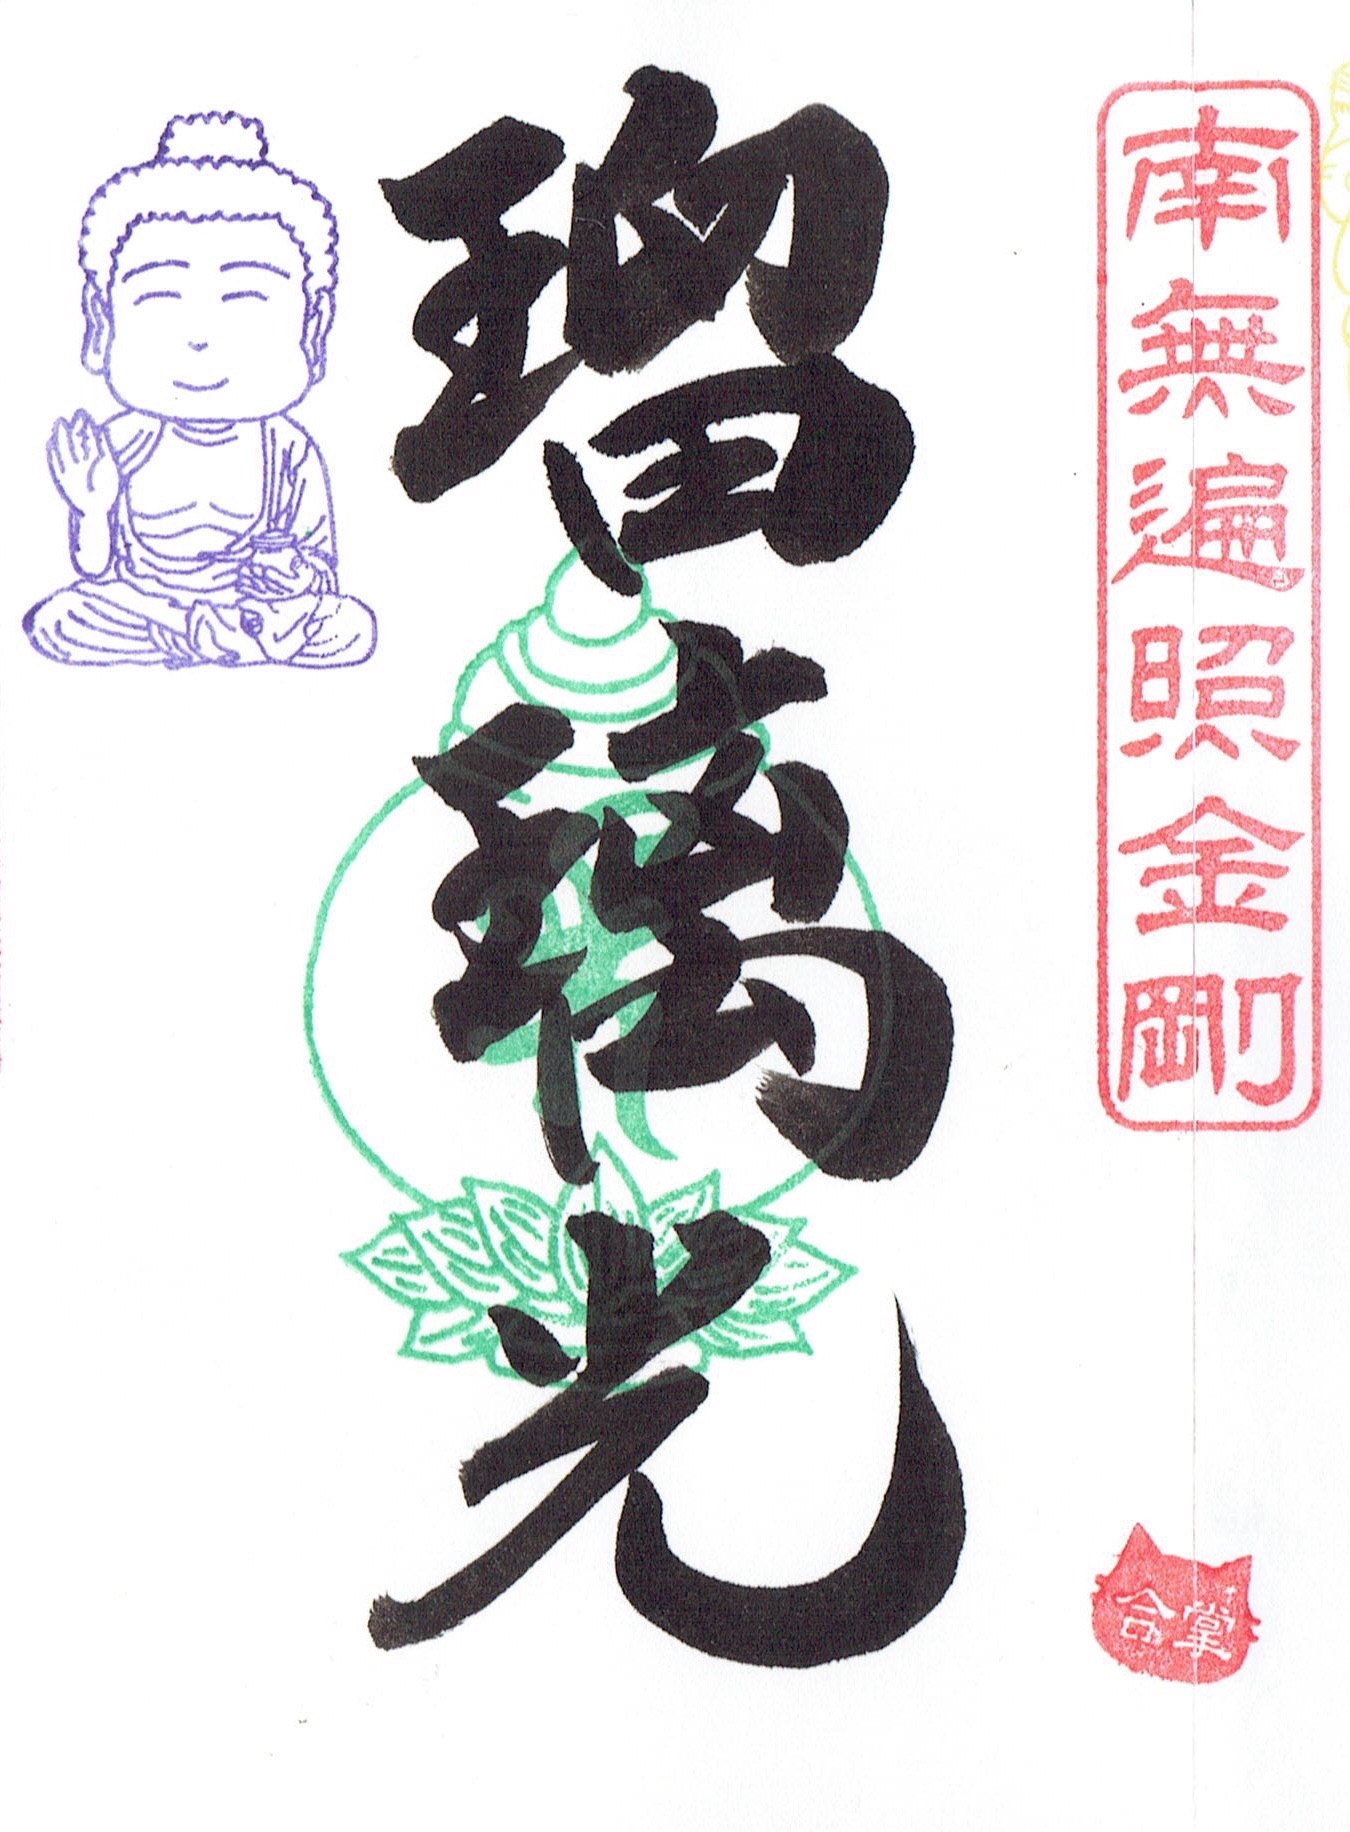 南無遍照金剛
合掌
瑠璃光